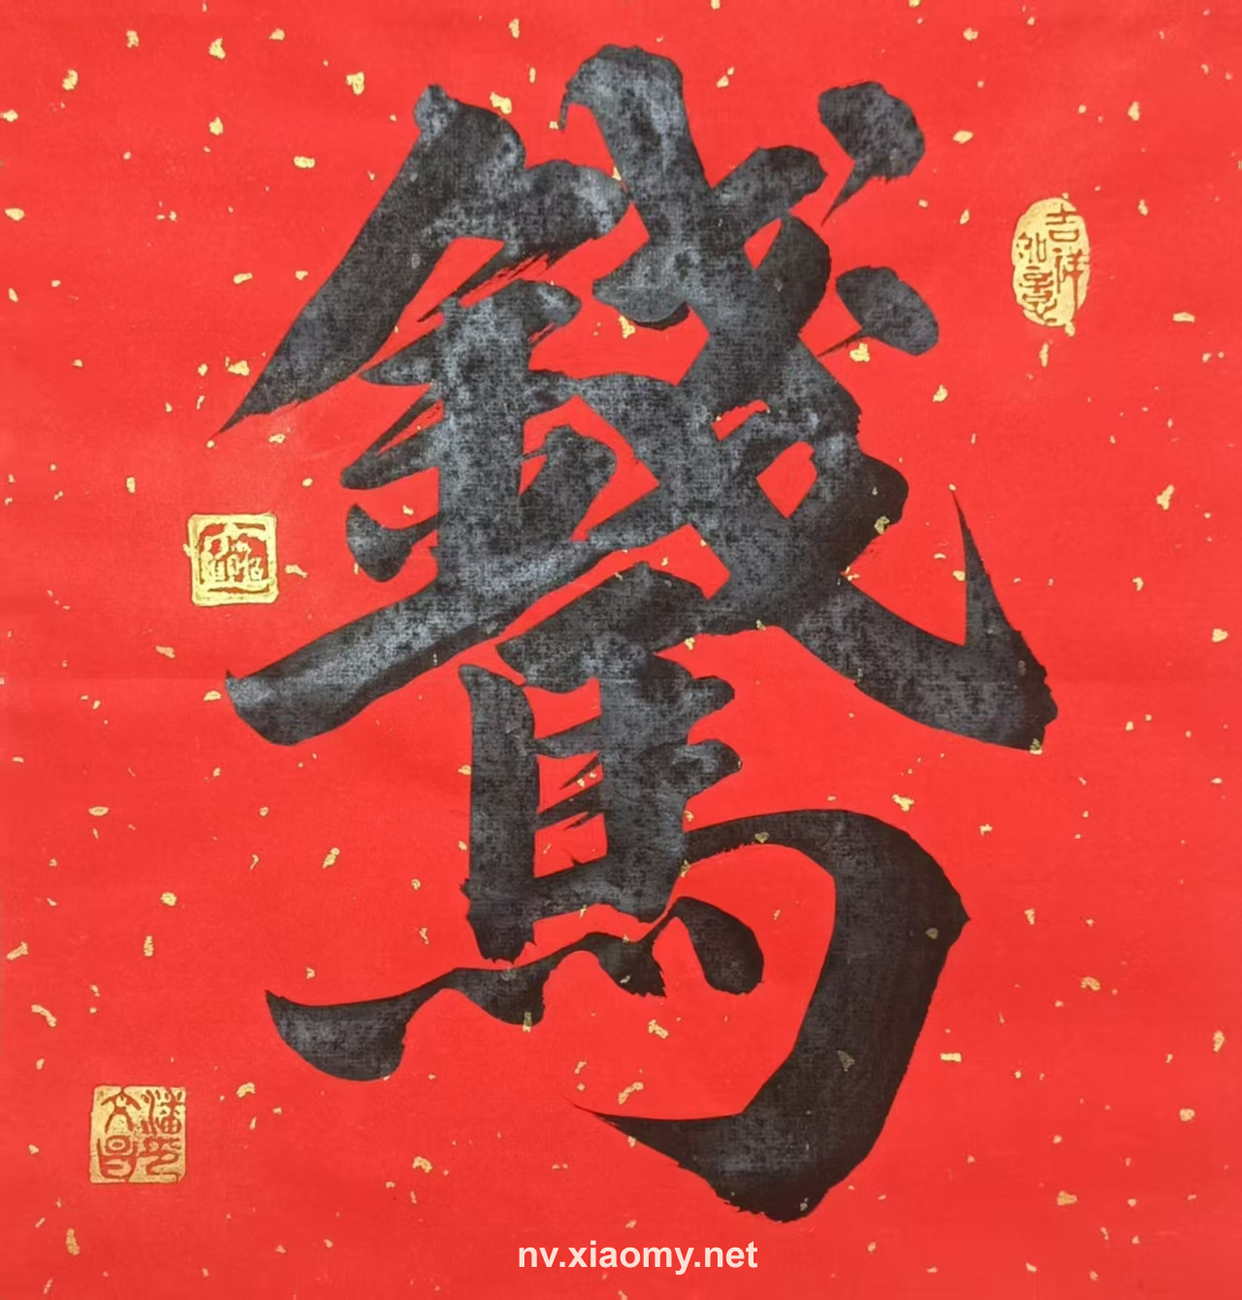 錢
馬
吉祥
如意
nv.xiaomy.net